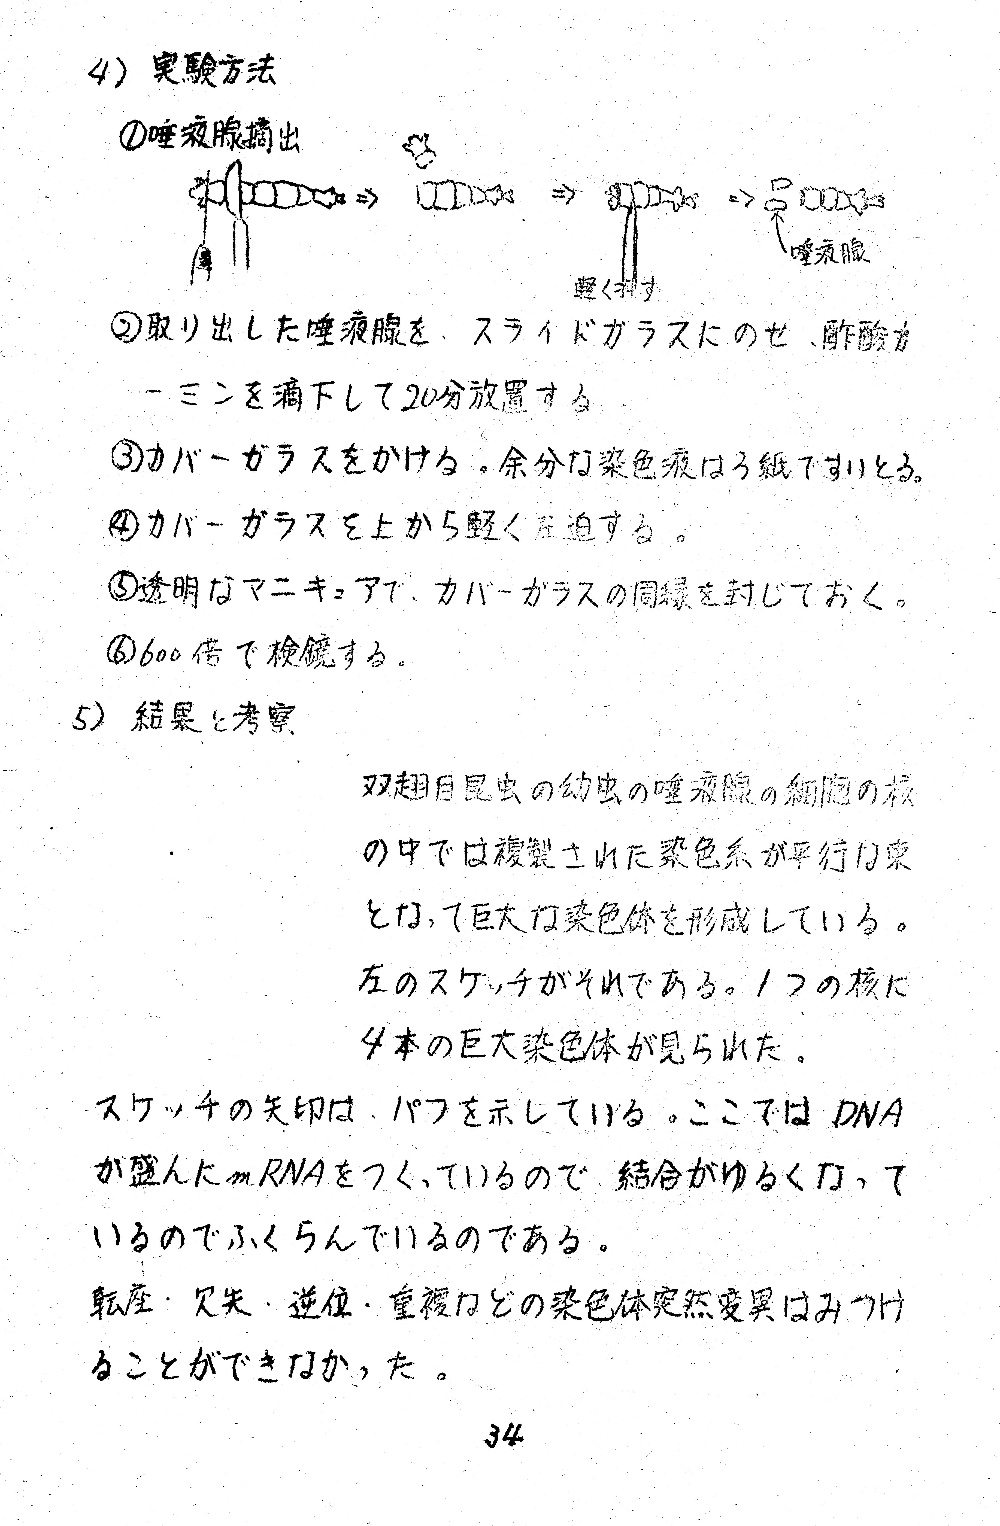 4) 実験方法
①唾液腺摘出
唾液腺
軽く押す
②取り出した唾液腺を、スライドガラスにのせ、酢酸カ
ーミンを滴下して20分放置する
③カバーガラスをかける。余分な染色液はろ紙ですいとる。
④カバーガラスを上から軽く圧迫する。
⑤透明なマニキュアで、カバーガラスの周縁を封じておく。
⑥600倍で検鏡する。
5) 結果と考察
双翅目昆虫の幼虫の唾液腺の細胞の核
の中では複製された染色糸が平行な束
となって巨大な染色体を形成している。
左のスケッチがそれである。1つの核に
4本の巨大染色体が見られた。
スケッチの矢印は、パフを示している。ここではDNA
が盛んにmRNAをつくっているので 結合がゆるくなって
いるのでふくらんでいるのである。
転座・欠失・逆位・重複などの染色体突然変異はみつけ
ることができなかった。
34